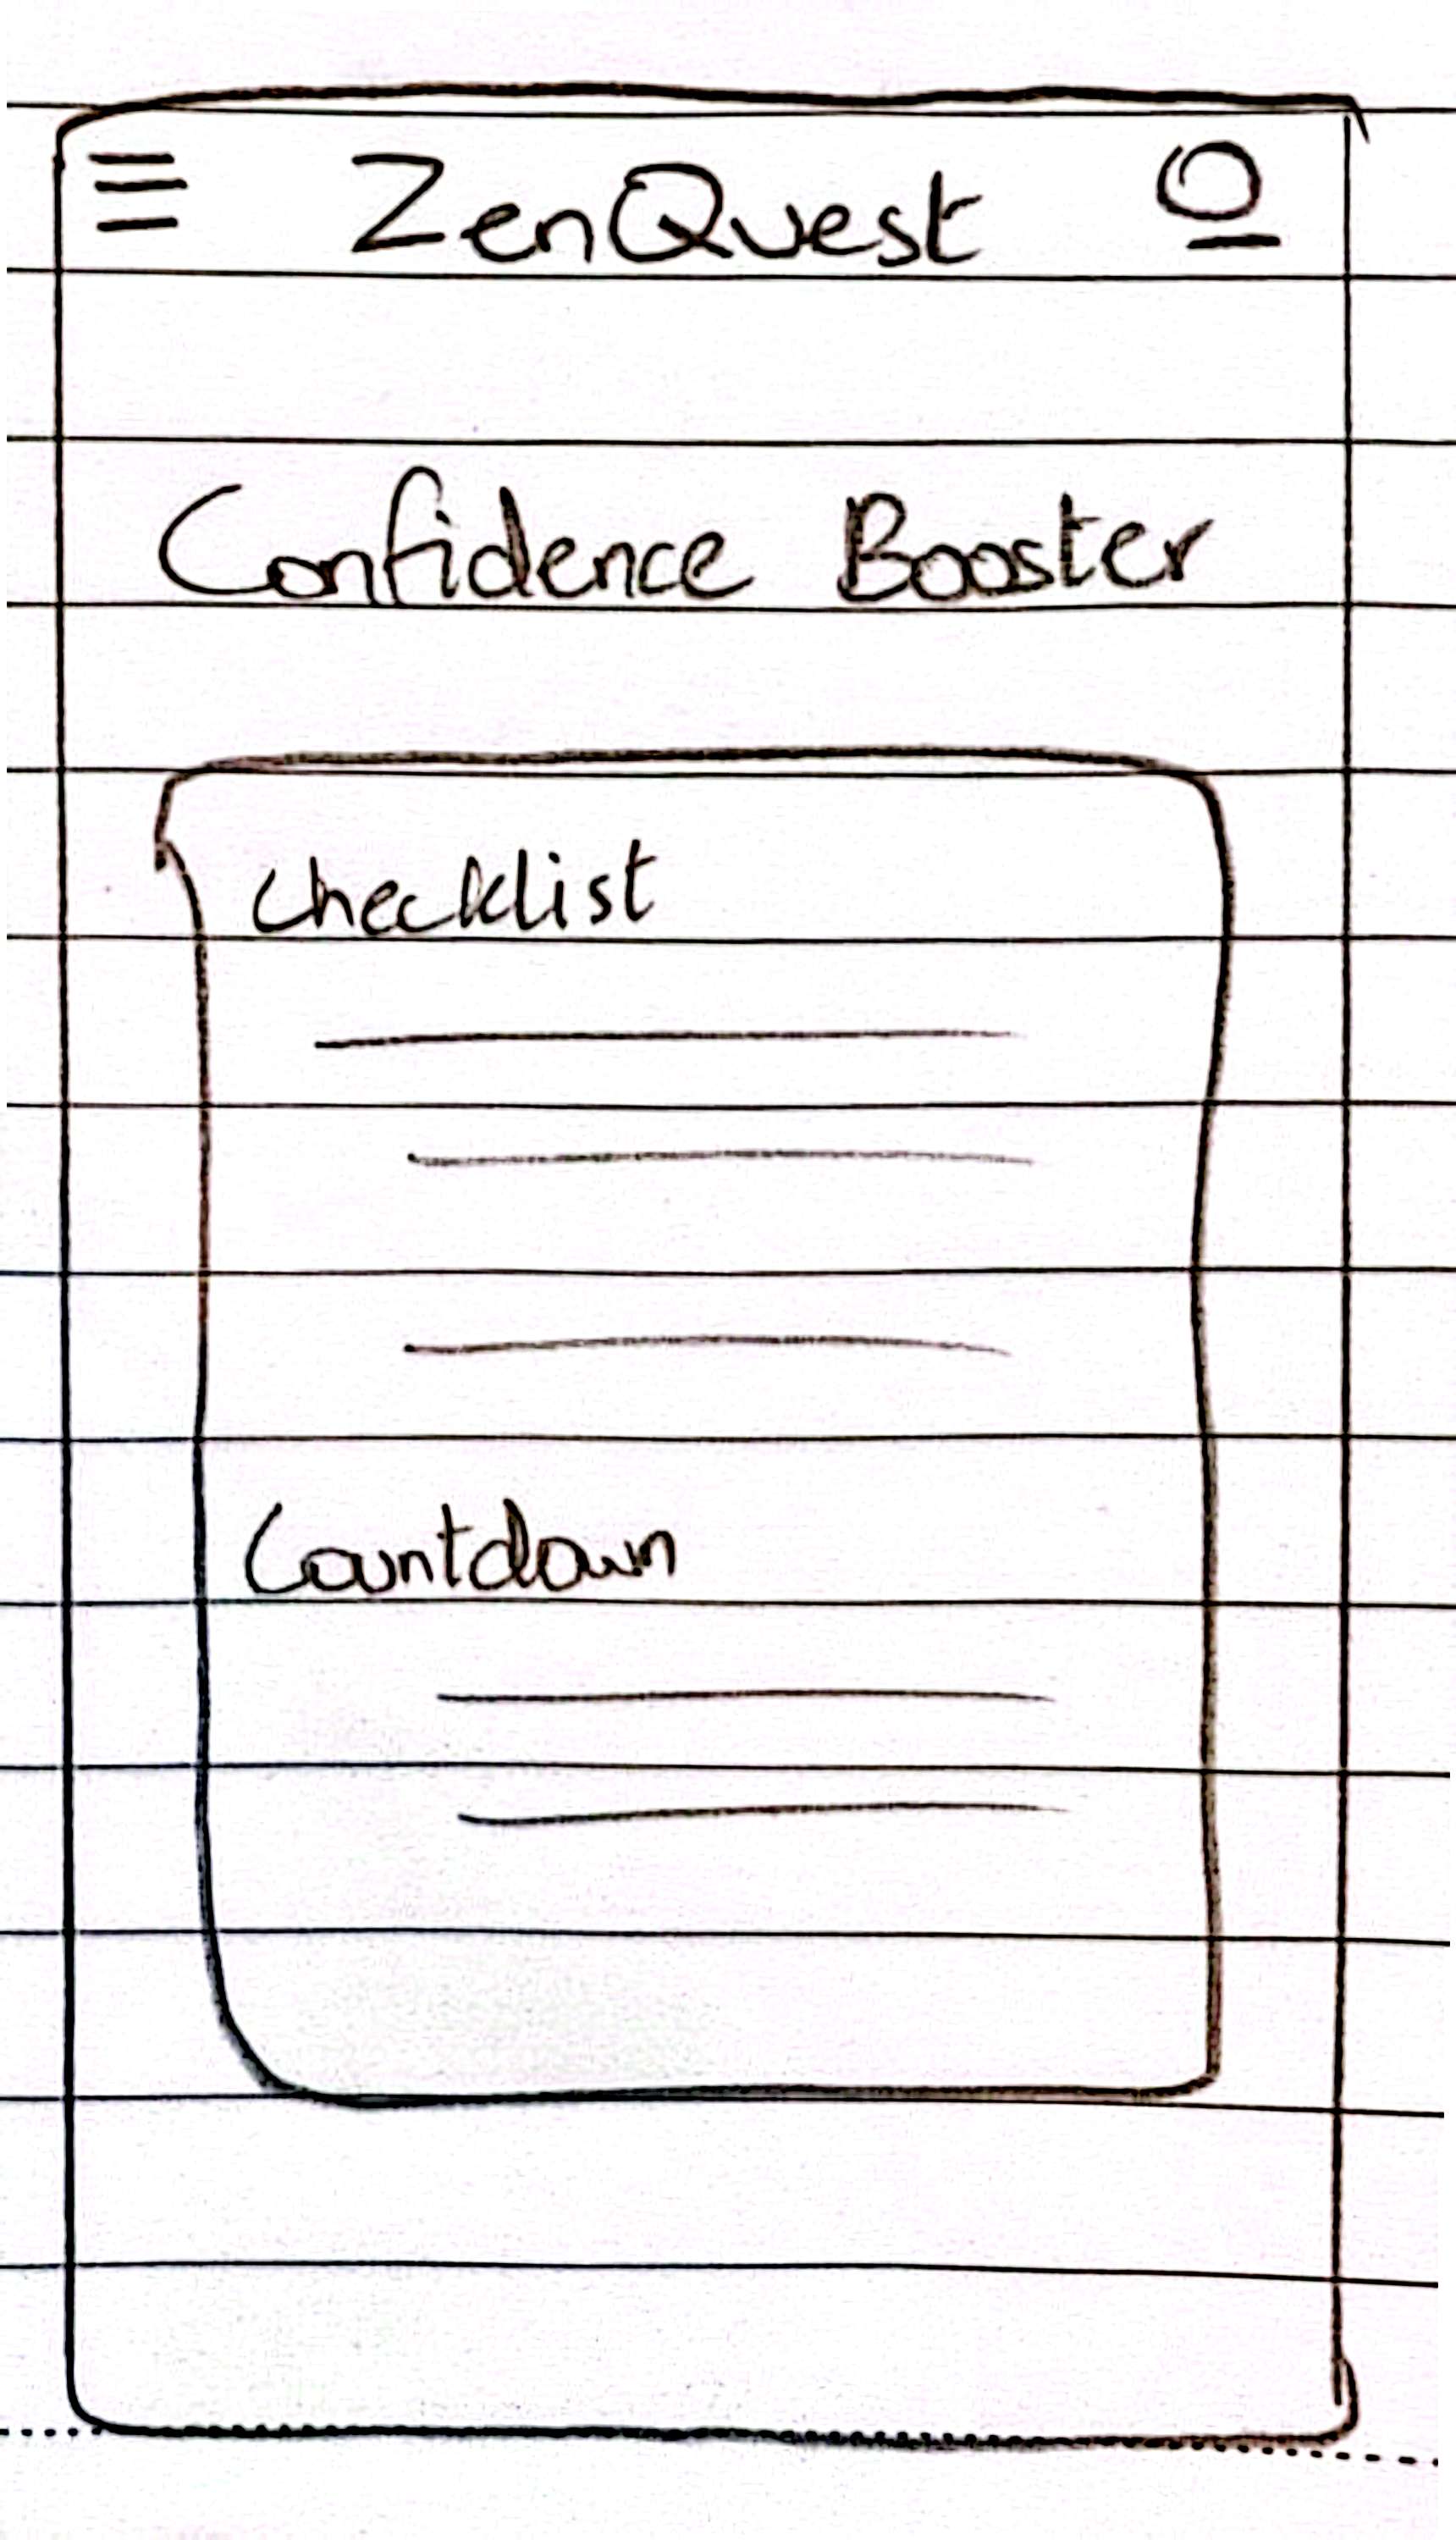 ZenQuest
Confidence Booster
Checklist
Countdown